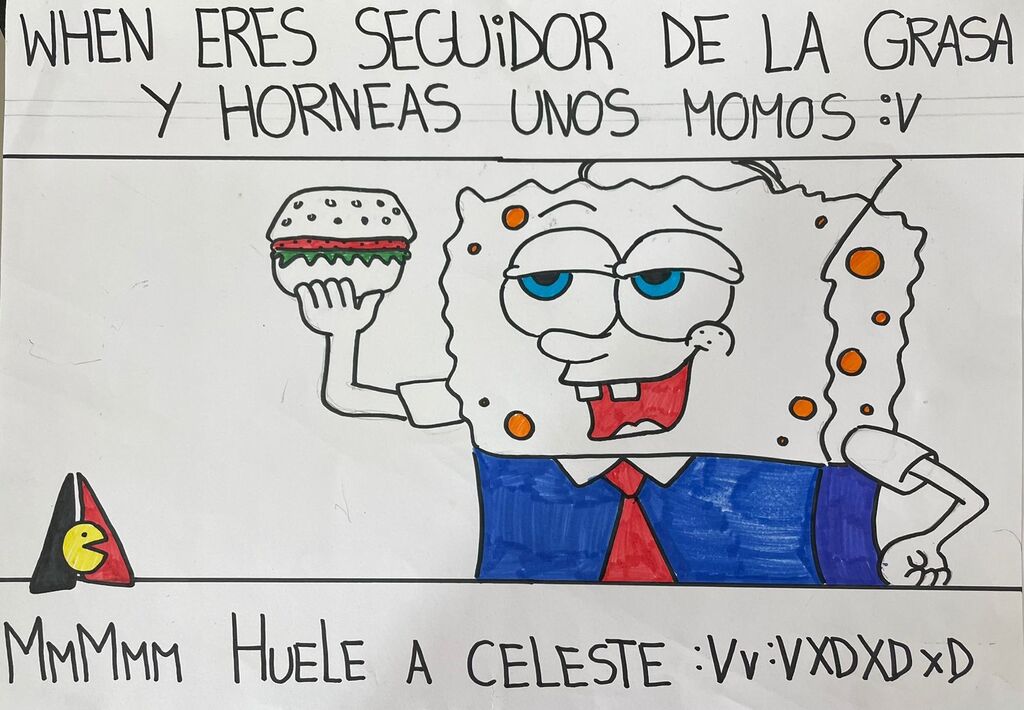 WHEN ERES SEGUiDOR DE LA GRASA
Y HORNEAS UNOS MOMOS :V
MmMmm HUELE A CELESTE :Vv:VXDXDxD